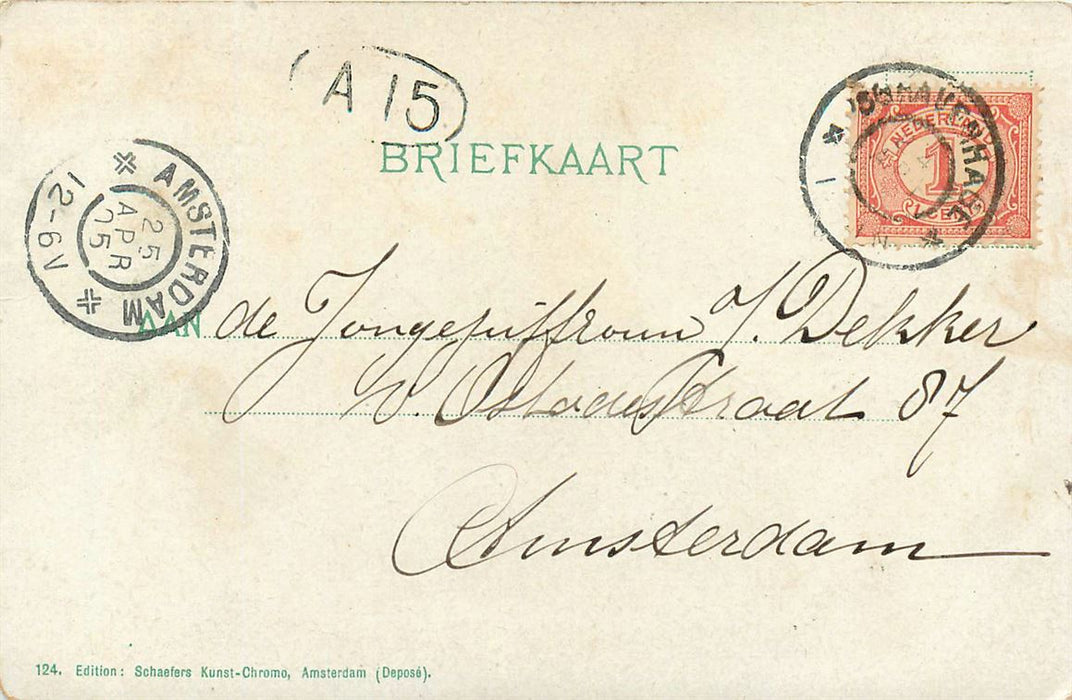 A 15
BRIEFKAART
'SGRAVENHAGE
NEDERL
1
CENT
AMSTERDAM
25
APR
05
12-6V
AAN de Jongejuffrouw J. Dekker
v. Ostadestraat 87
Amsterdam
124. Edition: Schaefers Kunst-Chromo, Amsterdam (Deposé).